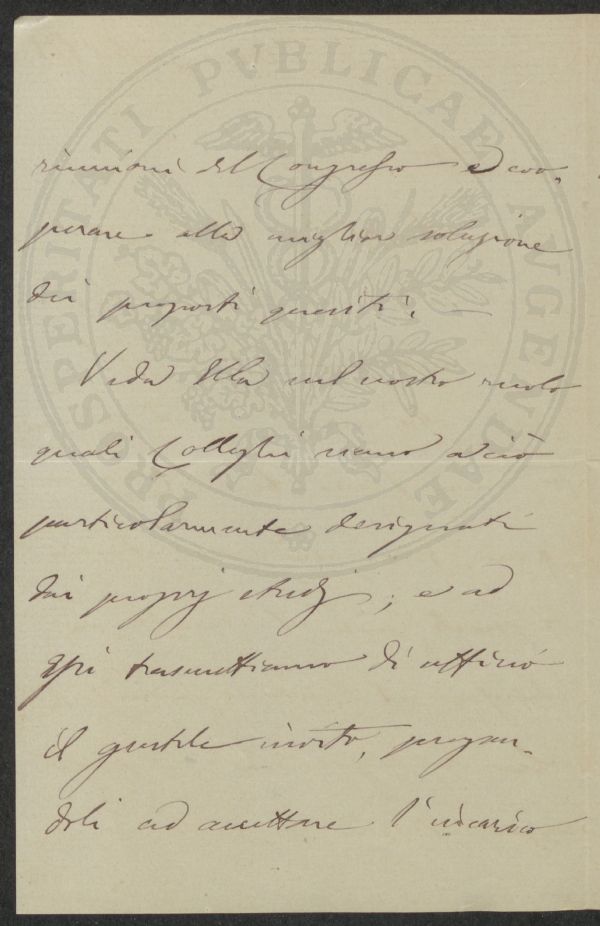 PROSPERITATI PVBLICAE AVGENDAE
riunioni del Congresso ed coo-
perare alla miglior soluzione
dei proposti quesiti. —
Veda Ella nel nostro ruolo
quali Colleghi siano a ciò
particolarmente designati
dai proprj studj; e ad
essi trasmettiamo di ufficio
il gentile invito, pregan-
doli ad accettare l'incarico